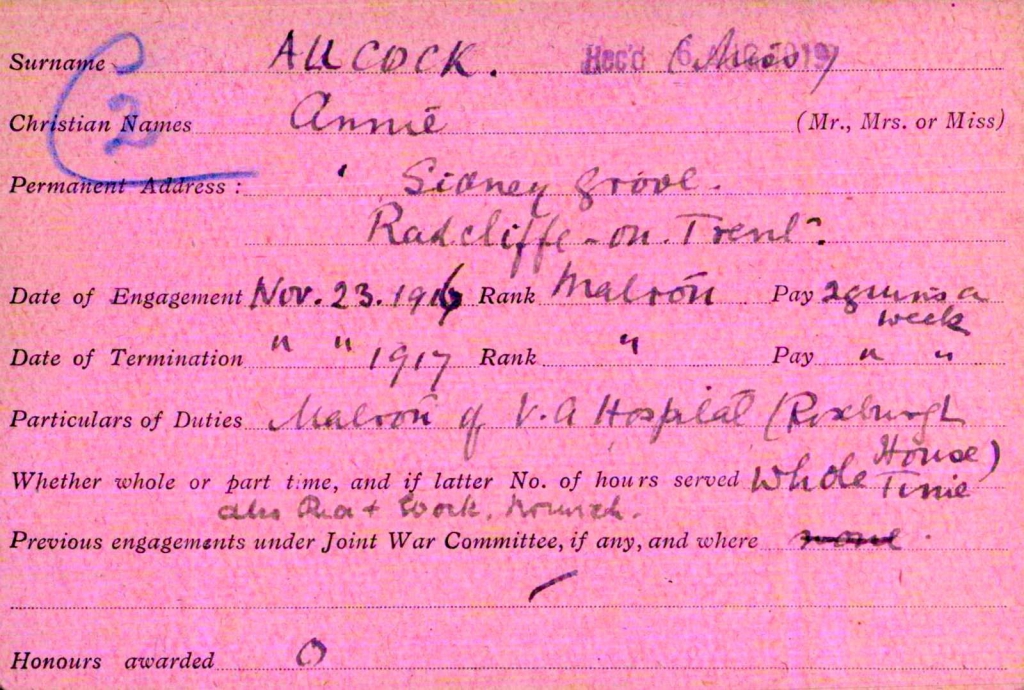 Surname ALLCOCK. Rec'd 6 (Miss)
2
Christian Names Annie (Mr., Mrs. or Miss)
Permanent Address: Sidney Grove.
Radcliffe-on-Trent.
Date of Engagement Nov. 23. 1916 Rank Matron Pay 2 guins a
week
Date of Termination " " 1917 Rank " Pay " "
Particulars of Duties Matron of V.A Hospital (Roxburgh
House)
Whether whole or part time, and if latter No. of hours served Whole Time
also
Previous engagements under Joint War Committee, if any, and where none.
Honours awarded O